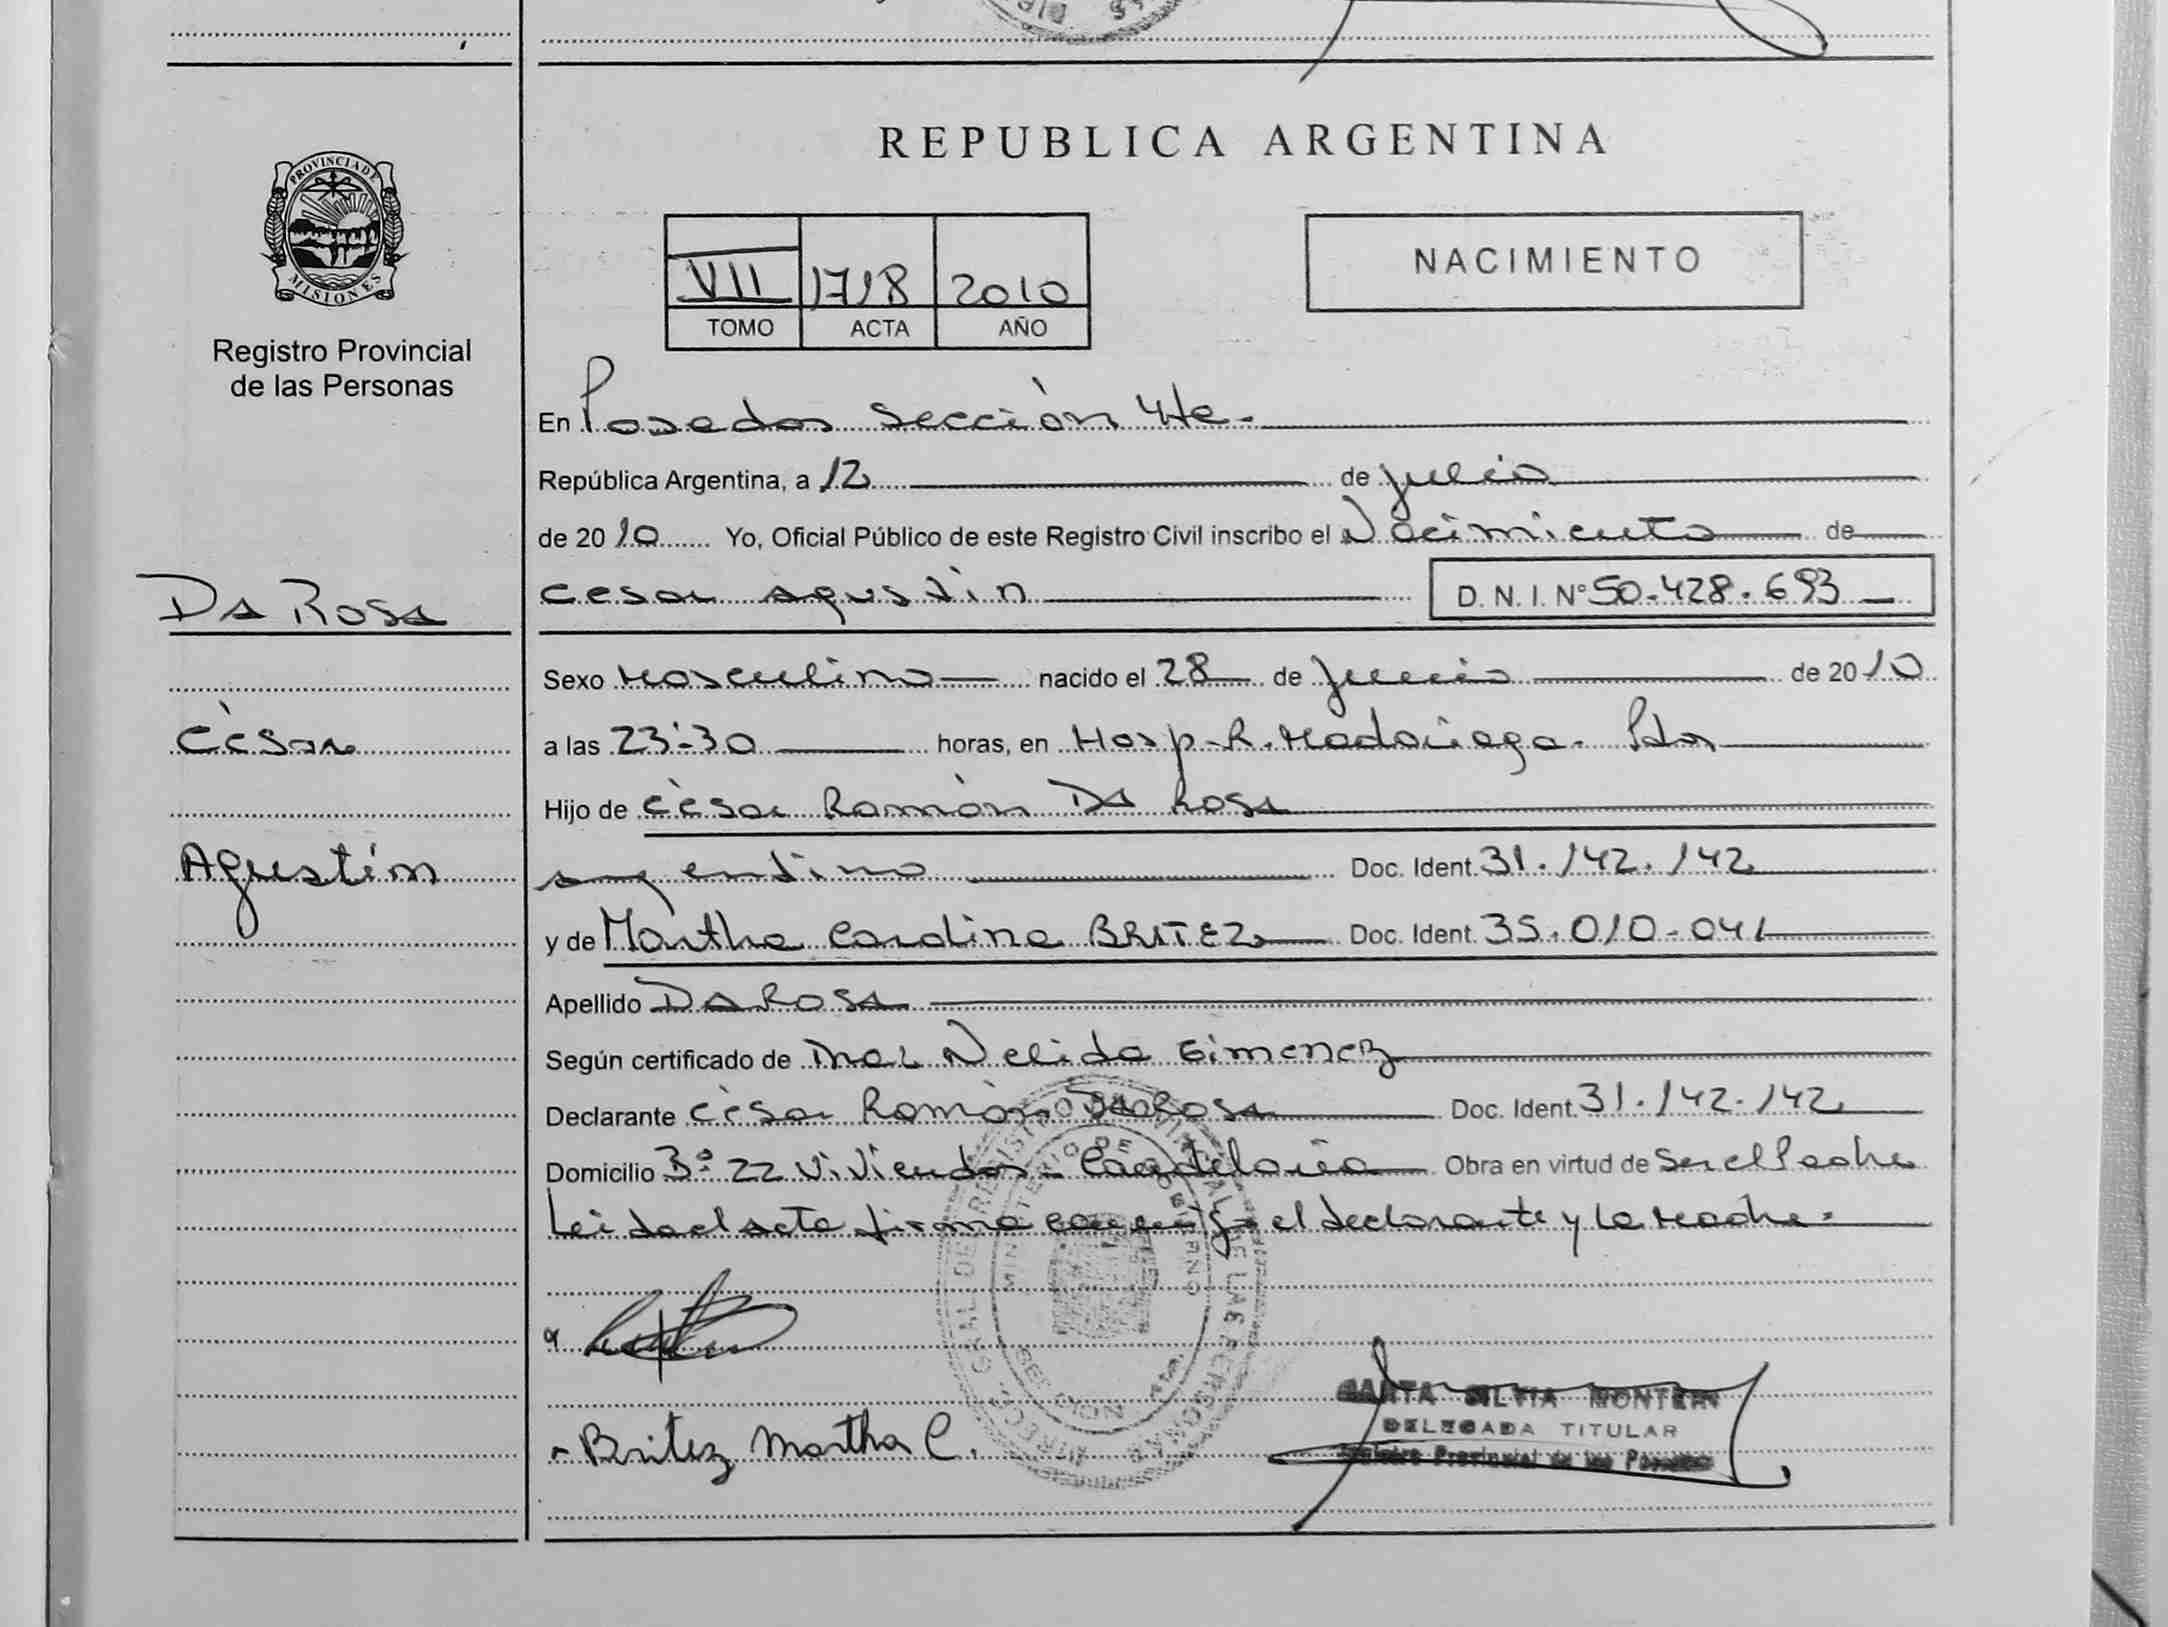 REPUBLICA ARGENTINA
PROVINCIA DE MISIONES
Registro Provincial
de las Personas
VII 1718 2010
TOMO ACTA AÑO
NACIMIENTO
En Posadas sección 4te.
República Argentina, a 12 de julio
de 2010 Yo, Oficial Público de este Registro Civil inscribo el Nacimiento de
Da Rosa
César
Agustín
Cesar Agustin D. N. I. Nº 50.428.693
Sexo Masculino nacido el 28 de junio de 2010
a las 23:30 horas, en Hosp. R. Madariaga. Pdas
Hijo de Cèsar Ramòn Da Rosa
argentino Doc. Ident. 31.142.142
y de Martha Carolina BRITEZ Doc. Ident. 35.010.041
Apellido Da Rosa
Según certificado de Nelida Gimenez
Declarante Cèsar Ramòn Da Rosa Doc. Ident. 31.142.142
Domicilio 3º 22 Viviendas - Candelaria Obra en virtud de Ser el Padre
Leida el acta firma conmigo el declarante y la Madre.
Britez Martha C.
SILVIA MONTERI
DELEGADA TITULAR
Registro Provincial de las Personas